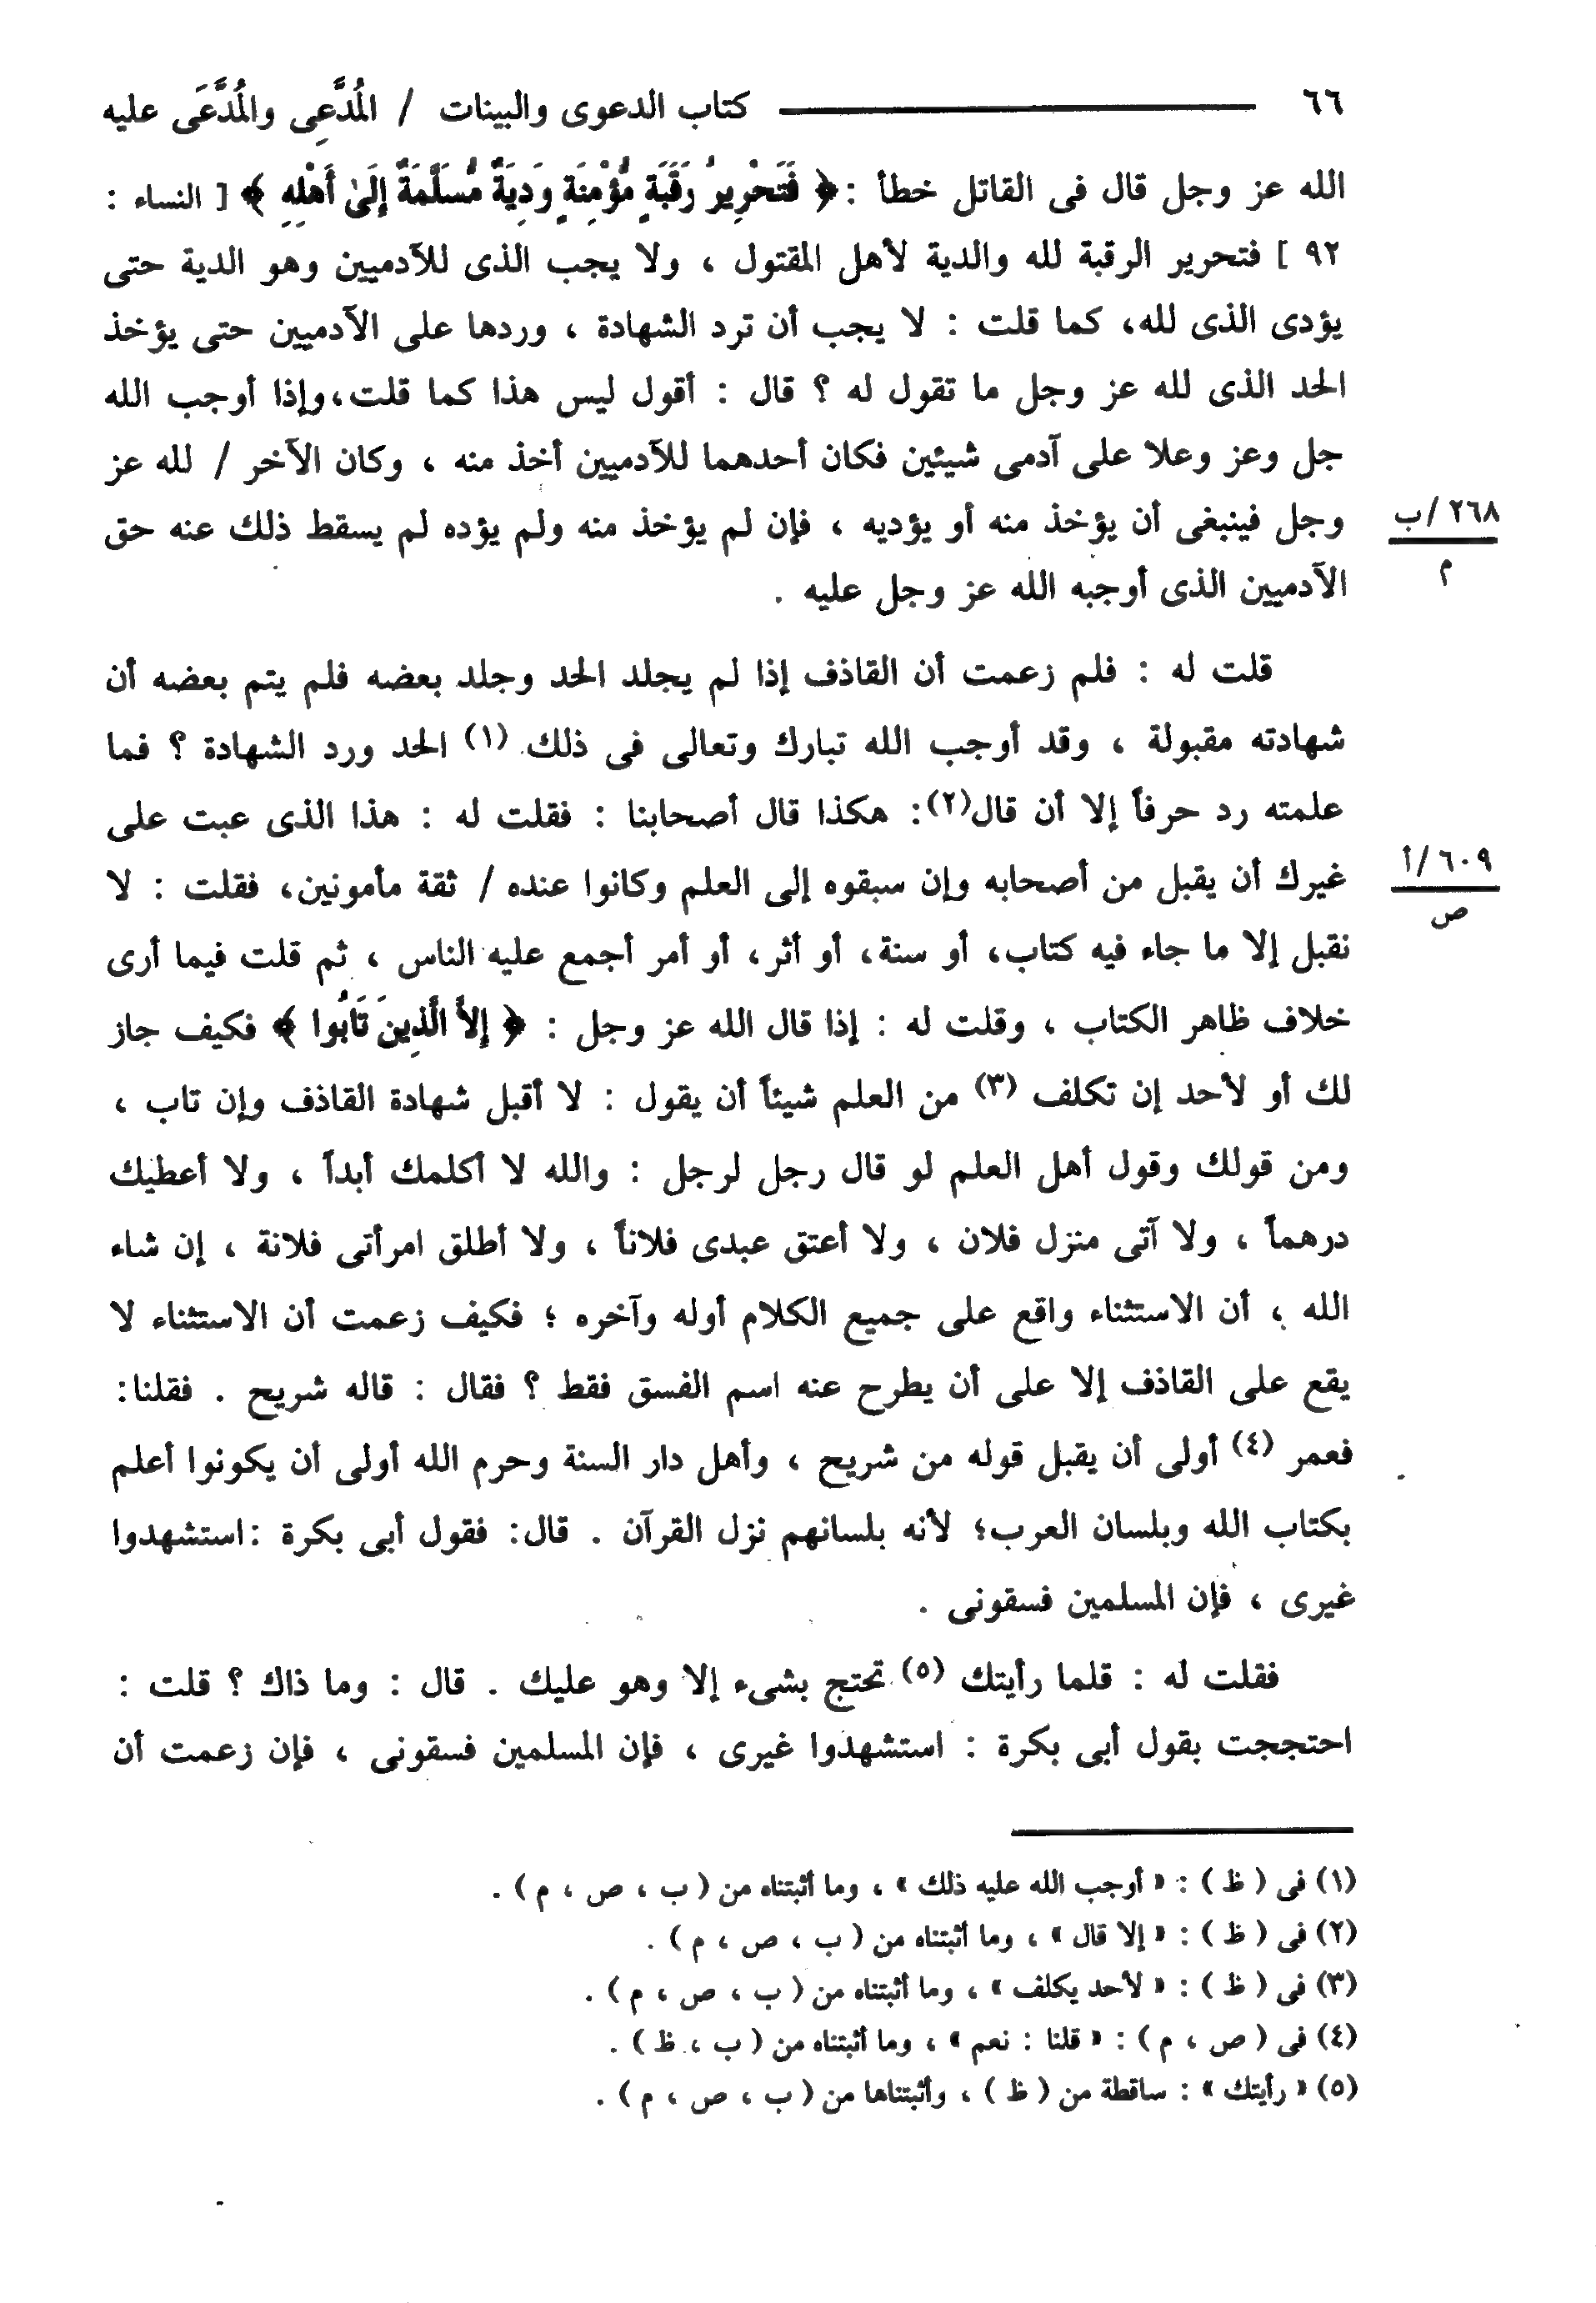 ٦٦ كتاب الدعوى والبينات / المُدَّعِى والمُدَّعَى عليه
الله عز وجل قال فى القاتل خطأ : ﴿ فَتَحْرِيرُ رَقَبَةٍ مُّؤْمِنَةٍ وَدِيَةٌ مُّسَلَّمَةٌ إِلَىٰ أَهْلِهِ ﴾ [ النساء :
٩٢ ] فتحرير الرقبة لله والدية لأهل المقتول ، ولا يجب الذى للآدميين وهو الدية حتى
يؤدى الذى لله، كما قلت : لا يجب أن ترد الشهادة ، وردها على الآدميين حتى يؤخذ
الحد الذى لله عز وجل ما تقول له ؟ قال : أقول ليس هذا كما قلت،وإذا أوجب الله
جل وعز وعلا على آدمى شيئين فكان أحدهما للآدميين أخذ منه ، وكان الآخر / لله عز
وجل فينبغى أن يؤخذ منه أو يؤديه ، فإن لم يؤخذ منه ولم يؤده لم يسقط ذلك عنه حق
٢٦٨/ب
م
الآدميين الذى أوجبه الله عز وجل عليه .
قلت له : فلم زعمت أن القاذف إذا لم يجلد الحد وجلد بعضه فلم يتم بعضه أن
شهادته مقبولة ، وقد أوجب الله تبارك وتعالى فى ذلك (١) الحد ورد الشهادة ؟ فما
علمته رد حرفاً إلا أن قال(٢): هكذا قال أصحابنا : فقلت له : هذا الذى عبت على
غيرك أن يقبل من أصحابه وإن سبقوه إلى العلم وكانوا عنده / ثقة مأمونين، فقلت : لا
٦٠٩/أ
ص
نقبل إلا ما جاء فيه كتاب، أو سنة، أو أثر، أو أمر أجمع عليه الناس ، ثم قلت فيما أرى
خلاف ظاهر الكتاب ، وقلت له : إذا قال الله عز وجل : ﴿ إِلاَّ الَّذِينَ تَابُوا ﴾ فكيف جاز
لك أو لأحد إن تكلف (٣) من العلم شيئاً أن يقول : لا أقبل شهادة القاذف وإن تاب ،
ومن قولك وقول أهل العلم لو قال رجل لرجل : والله لا أكلمك أبداً ، ولا أعطيك
درهماً ، ولا آتى منزل فلان ، ولا أعتق عبدى فلاناً ، ولا أطلق امرأتى فلانة ، إن شاء
الله ، أن الاستثناء واقع على جميع الكلام أوله وآخره ؛ فكيف زعمت أن الاستثناء لا
يقع على القاذف إلا على أن يطرح عنه اسم الفسق فقط ؟ فقال : قاله شريح . فقلنا:
فعمر (٤) أولى أن يقبل قوله من شريح ، وأهل دار السنة وحرم الله أولى أن يكونوا أعلم
بكتاب الله وبلسان العرب؛ لأنه بلسانهم نزل القرآن . قال: فقول أبى بكرة :استشهدوا
غيرى ، فإن المسلمين فسقونى .
فقلت له : قلما رأيتك (٥) تحتج بشىء إلا وهو عليك . قال : وما ذاك ؟ قلت :
احتججت بقول أبى بكرة : استشهدوا غيرى ، فإن المسلمين فسقونى ، فإن زعمت أن
(١) فى ( ظ ) : « أوجب الله عليه ذلك » ، وما أثبتناه من ( ب ، ص ، م ) .
(٢) فى ( ظ ) : « إلا قال » ، وما أثبتناه من ( ب ، ص ، م ) .
(٣) فى ( ظ ) : « لأحد يكلف » ، وما أثبتناه من ( ب ، ص ، م ) .
(٤) فى ( ص ، م ) : « قلنا : نعم » ، وما أثبتناه من ( ب ، ظ ) .
(٥) « رأيتك » : ساقطة من ( ظ ) ، وأثبتناها من ( ب ، ص ، م ) .